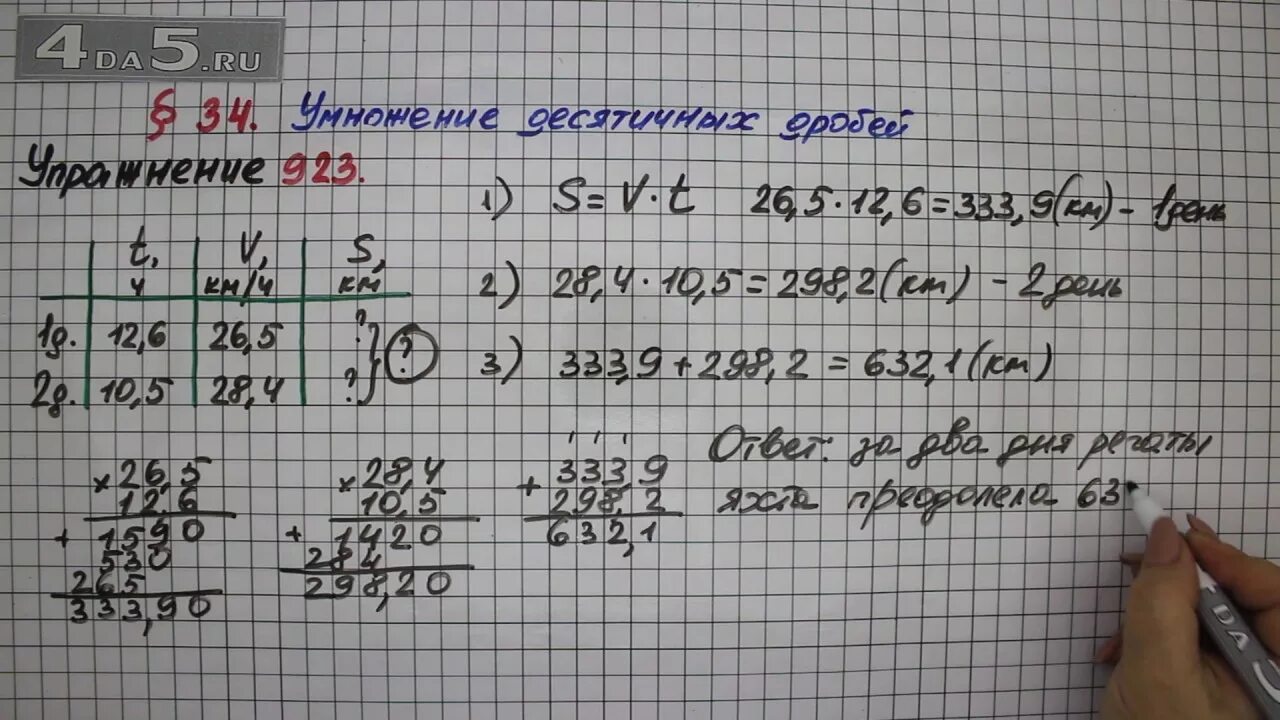 4DA5.RU
§ 34. Умножение десятичных дробей
Упражнение 923.
t, ч V, км/ч S, км
1д. 12,6 26,5 ?
2д. 10,5 28,4 ?
?
1) S = V · t 26,5 · 12,6 = 333,9 (км) – 1 день
2) 28,4 · 10,5 = 298,2 (км) – 2 день
3) 333,9 + 298,2 = 632,1 (км)
× 26,5
12,6
+ 1590
530
265
333,90
× 28,4
10,5
+ 1420
284
298,20
1 1 1
+ 333,9
298,2
632,1
Ответ: за два дня регаты
яхта преодолела 63
DA 5